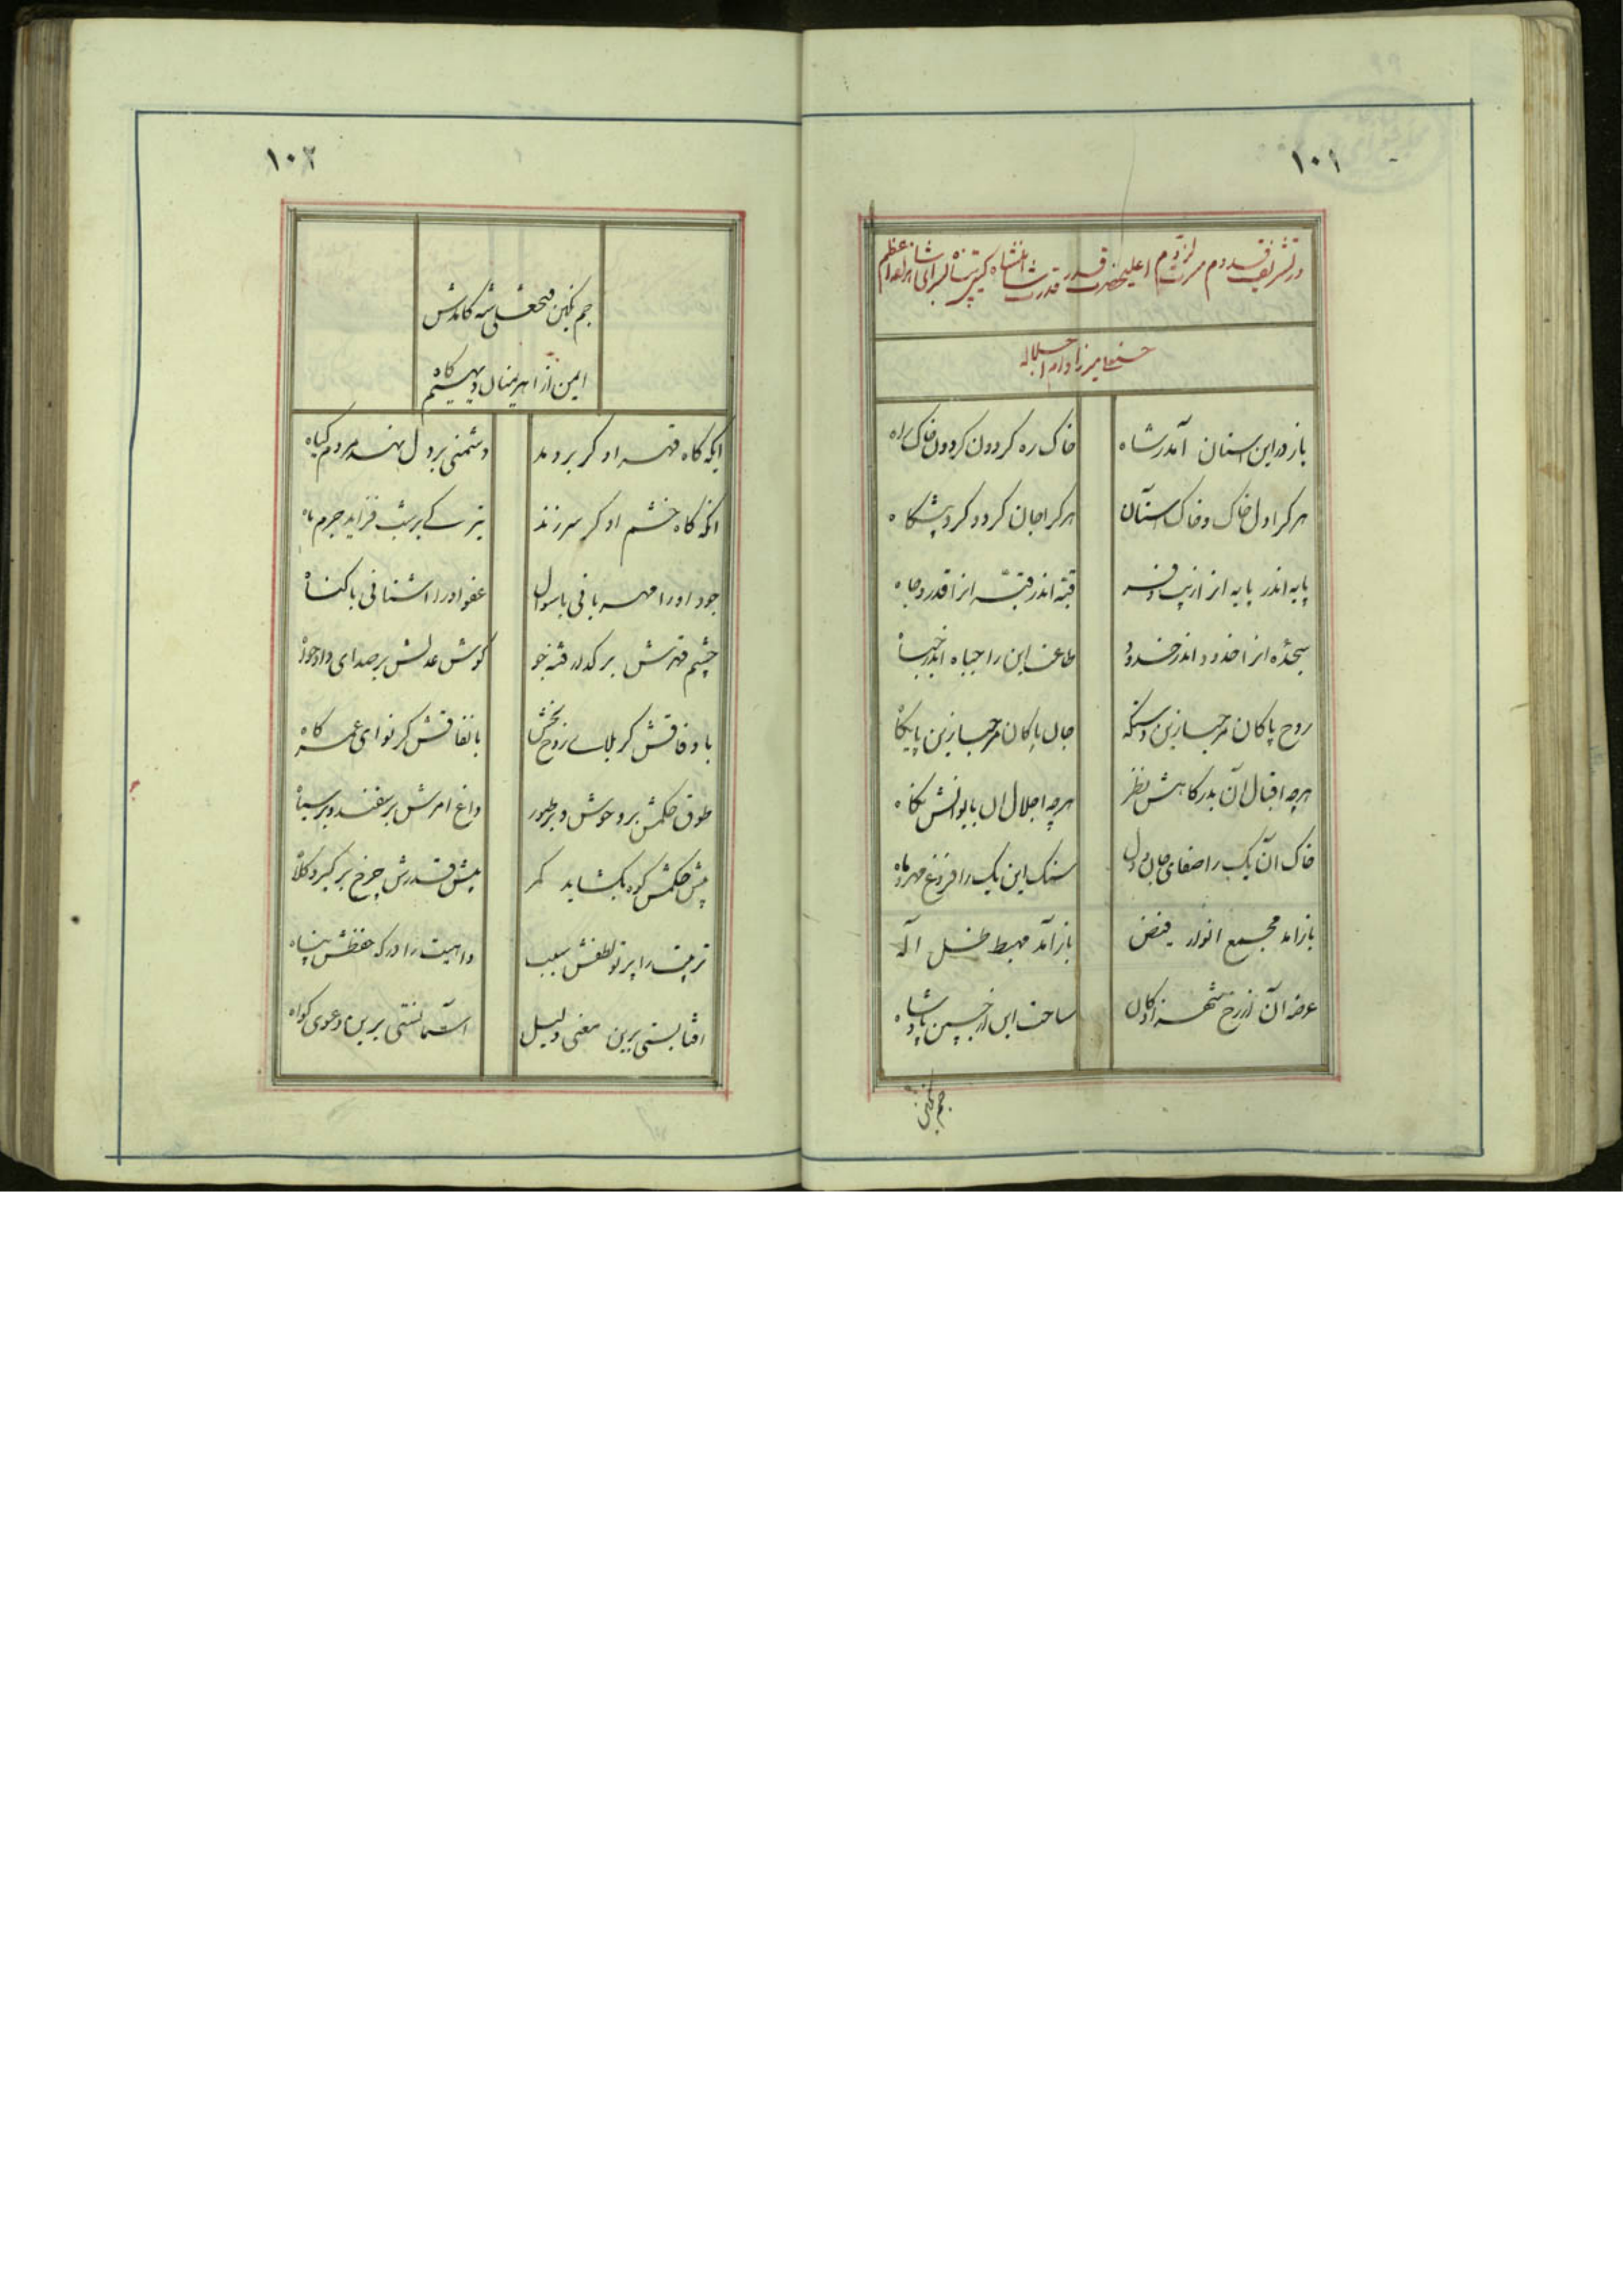 ۱۰۱
در تشریف قدوم مسرت لزوم اعلیحضرت قدر قدرت شاهنشاه گیتی پناه بسرای شاهزاده اعظم
حسنعلی میرزا دام اجلاله
باز در این استان آمد رشاه
خاک ره کردون کردون خاک راه
هر کرا دل خاک و خاک آستان
هر کرا جان کرد و کرد پیشکاه
پایه اندر پایه انرا زیب و فر
قبه اندر قبه انرا قدر و جاه
سجده انرا خدود اندر خدود
طاعت این را جباه اندر جباه
روح پاکان مرحبا زین دستکه
جان پاکان مرحبا زین پایکاه
هر چه اقبال آن بدرکاهش نظر
هر چه اجلال ان بایوانش نکاه
خاک آن یک را صفای جان و دل
سنک این یک را فروغ مهر و ماه
باز امد مجمع انوار فیض
باز آمد مهبط ظل اله
عرصه آن از رخ شهزادکان
ساحت این از جبین پادشاه
جم نکین
۱۰۲
جم نکین فتحعلی شه کامدش
ایمن از اهریمنان دیهیم کاه
انکه کاه قهر او کر بر دمد
دشمنی بر دل نهد مردم کیاه
انکه کاه خشم او کر سر زند
تیرکی بر شب فزاید جرم ماه
جود او را مهربانی با سوال
عفو او را اشنائی با کناه
چشم قهرش بر کدار فتنه جو
کوش عدلش بر صدای دادخواه
با وفاقش کر بلای روح بخش
با نفاقش کر نوای عمر کاه
طوق حکمش بر وحوش و بر طیور
داغ امرش بر سفید و بر سیاه
پیش حکمش کوه بکشاید کمر
پیش قدرش چرخ بر کیرد کلاه
تربیت را پرتو لطفش سبب
واهیت را درکه حفظش پناه
افتابستی برین معنی دلیل
آسمانستی برین دعوی کواه